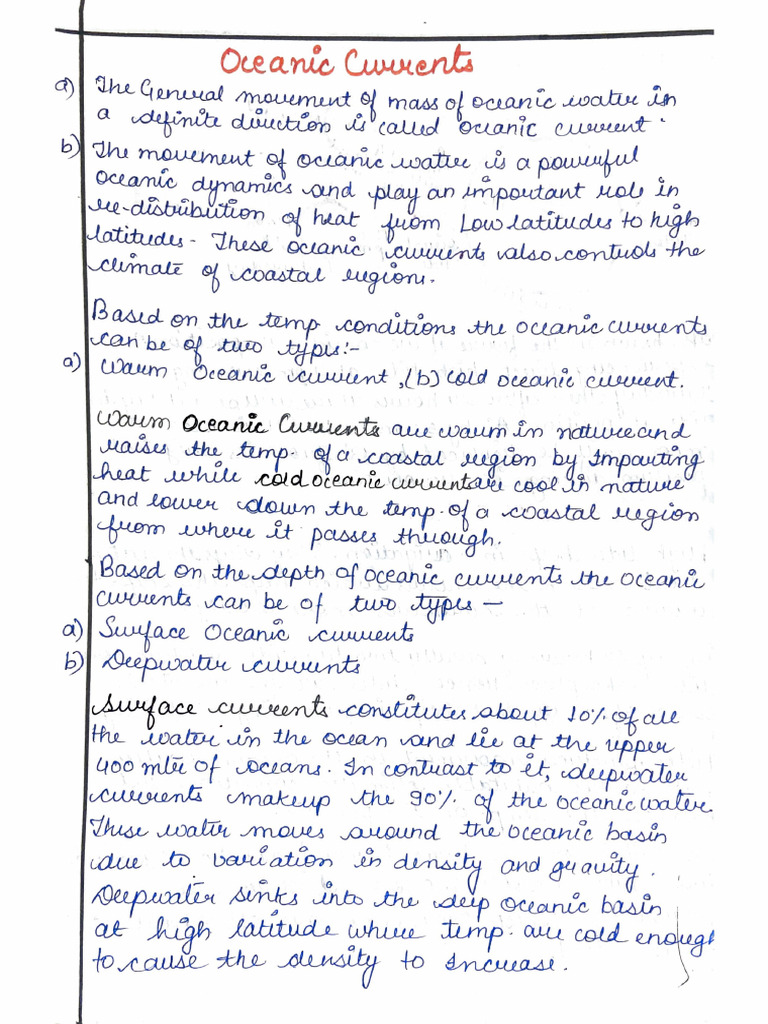 Oceanic Currents
a) The General movement of mass of oceanic water in
a definite direction is called oceanic current.
b) The movement of oceanic water is a powerful
oceanic dynamics and play an important role in
re-distribution of heat from Low latitudes to high
latitudes- These oceanic currents also controls the
climate of coastal regions.
Based on the temp. conditions the oceanic currents
can be of two types:-
a) Warm Oceanic current, (b) cold oceanic current.
Warm Oceanic Currents are warm in nature and
raises the temp. of a coastal region by Imparting
heat while cold oceanic current are cool in nature
and lower down the temp. of a coastal region
from where it passes through.
Based on the depth of oceanic currents the oceanic
currents can be of two types —
a) Surface Oceanic currents
b) Deepwater currents
Surface currents constitutes about 10% of all
the water in the ocean and lie at the upper
400 mtr of oceans. In contrast to it, deepwater
currents makeup the 90% of the oceanic water.
These water moves around the oceanic basin
due to variation in density and gravity.
Deepwater sinks into the deep oceanic basin
at high latitude where temp. are cold enough
to cause the density to Increase.